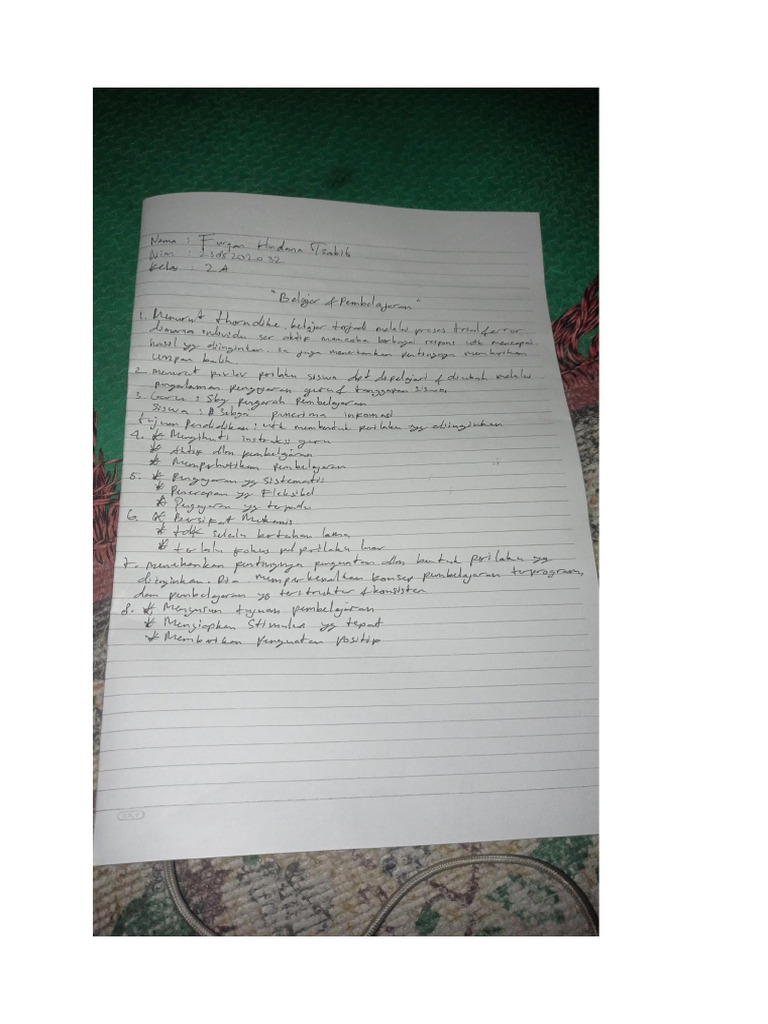 Nama : Furqan Hudana Tsabit
Nim : 2305202032
Kelas : 2A
"Belajar & Pembelajaran"
1. Menurut thorndike, belajar terjadi melalui proses trial & error
dimana individu scr aktif mencoba berbagai respons utk mencapai
hasil yg diinginkan. Ia juga menekankan pentingnya memberikan
umpan balik
2. menurut pavlov perilaku siswa dpt dipelajari & diubah melalui
pengalaman pengajaran guru & tanggapan siswa
3. Guru : Sbg pengarah Pembelajaran
Siswa : sebagai penerima informasi
tujuan Pendidikan : utk membentuk perilaku yg diinginkan
4. * Mengikuti instruksi guru
* Aktif dlm pembelajaran
* Memperhatikan pembelajaran
5. * Pengajaran yg sistematis
* Penerapan yg Fleksibel
* Pengajaran yg terpadu
6. * Bersifat Mekanis
* tdk selalu bertahan lama
* terlalu fokus pd perilaku luar
7. menekankan pentingnya penguatan dlm bentuk perilaku yg
diinginkan. Dia memperkenalkan konsep pembelajaran terprogram,
dan pembelajaran yg terstruktur & konsisten
8. * Menyusun tujuan pembelajaran
* Menyiapkan Stimulus yg tepat
* Memberikan penguatan positip